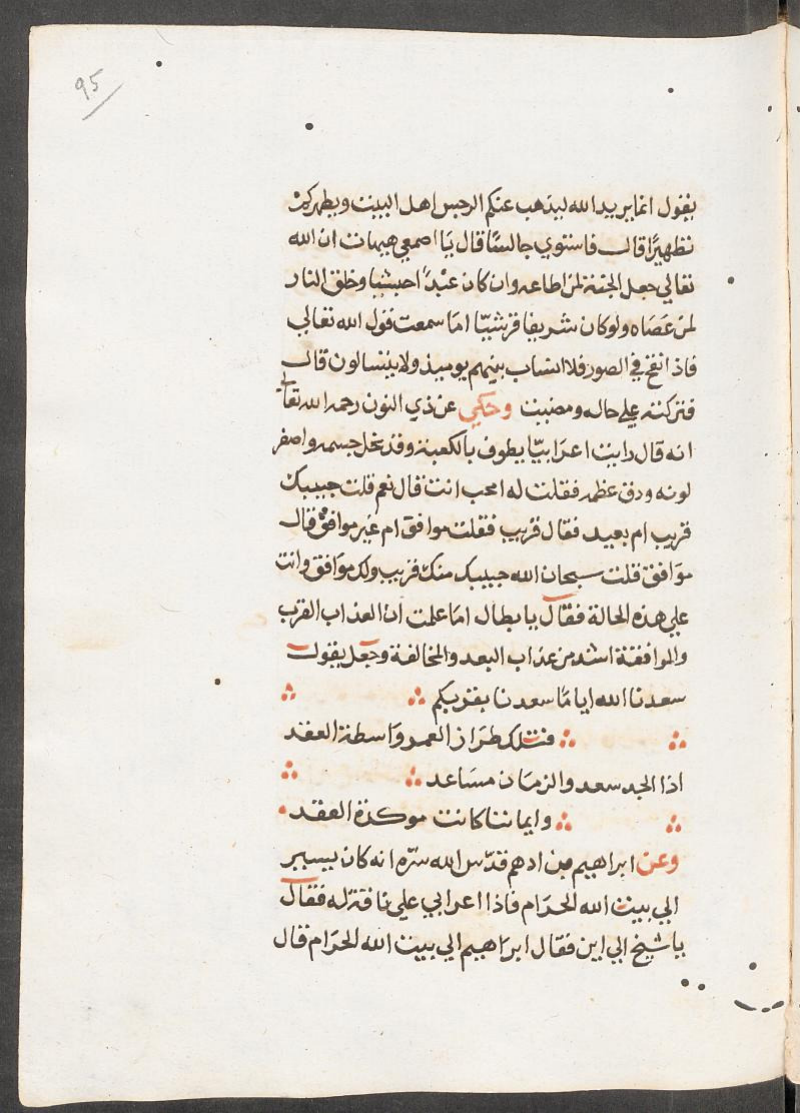 95
يقول انما يريد الله ليذهب عنكم الرجس اهل البيت ويطهركم
تطهيرًا قال فاستوي جالسًا قال يا اصمعي هيهات ان الله
تعالي جعل الجنة لمن اطاعه وان كان عبدًا حبشيا وخلق النار
لمن عصاه ولو كان شريفا قرشيّا اما سمعت قول الله تعالي
فاذا نفخ في الصور فلا انساب بينهم يوميذ ولا يتسالون قال
فتركته علي حاله ومضيت وحكي عن ذي النون رحمه الله تعالي
انه قال رايت اعرابيّا يطوف بالكعبة وقد نحل جسمه واصفر
لونه ودق عظمه فقلت له امحب انت قال نعم قلت حبيبك
قريب ام بعيد فقال قريب فقلت موافق ام غير موافق قال
موافق قلت سبحان الله حبيبك منك قريب ولك موافق وانت
علي هذه الحالة فقال يا بطال اما علمت ان العذاب القرب
والموافقة اشد من عذاب البعد والمخالفة وجعل يقول
سعدنا الله اياما سعدنا بقربكم
فتلك طراز العمر واسطة العقد
اذا الجد سعد والزمان مساعد
وايماننا كانت موكدة العقد
وعن ابراهيم بن ادهم قدّس الله سرّه انه كان يسير
الي بيت الله الحرام فاذا اعرابي علي ناقة له فقال
يا شيخ الي اين فقال ابراهيم الي بيت الله الحرام قال